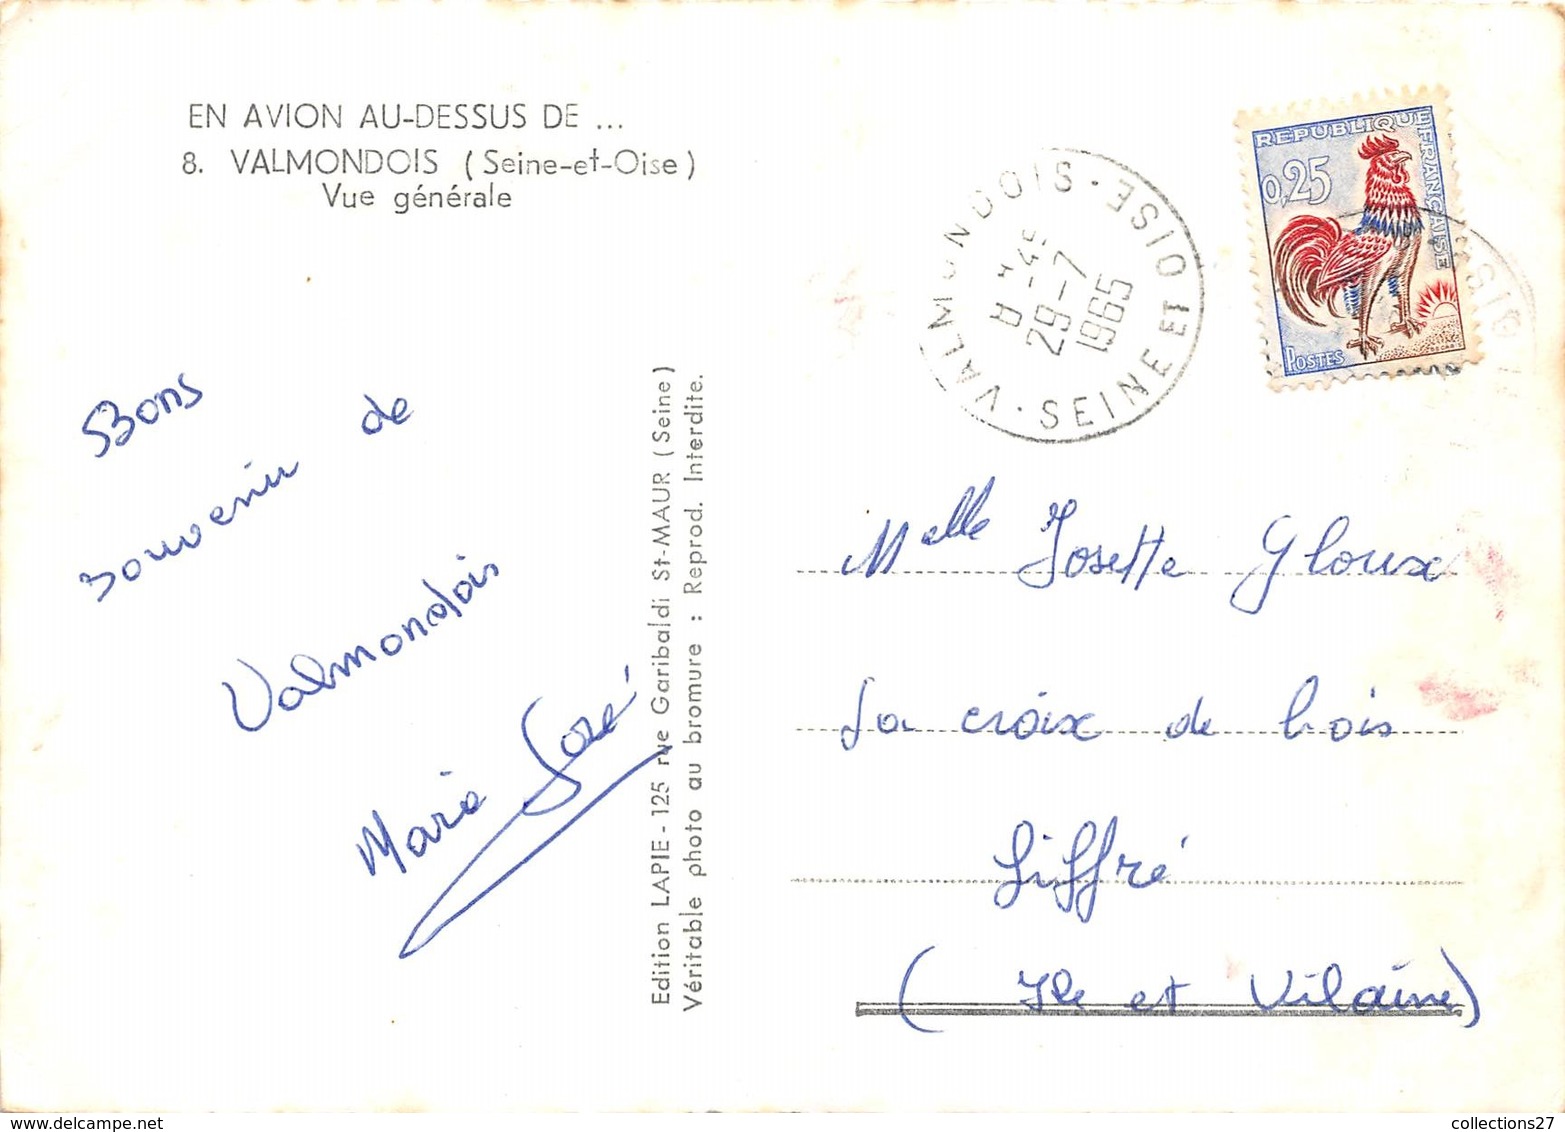 EN AVION AU-DESSUS DE ...
8. VALMONDOIS (Seine-et-Oise)
Vue générale
Bons
souvenir de
Valmondois
Marie José
Edition LAPIE - 125 rue Garibaldi St-MAUR (Seine)
Véritable photo au bromure : Reprod. Interdite.
VALMONDOIS · SEINE ET OISE ·
29-7
1965
REPUBLIQUE FRANÇAISE
0,25
POSTES
DECARIS
Melle Josette Gloux
La croix de bois
Liffré
(Ile et Vilaine)
www.delcampe.net
collections27